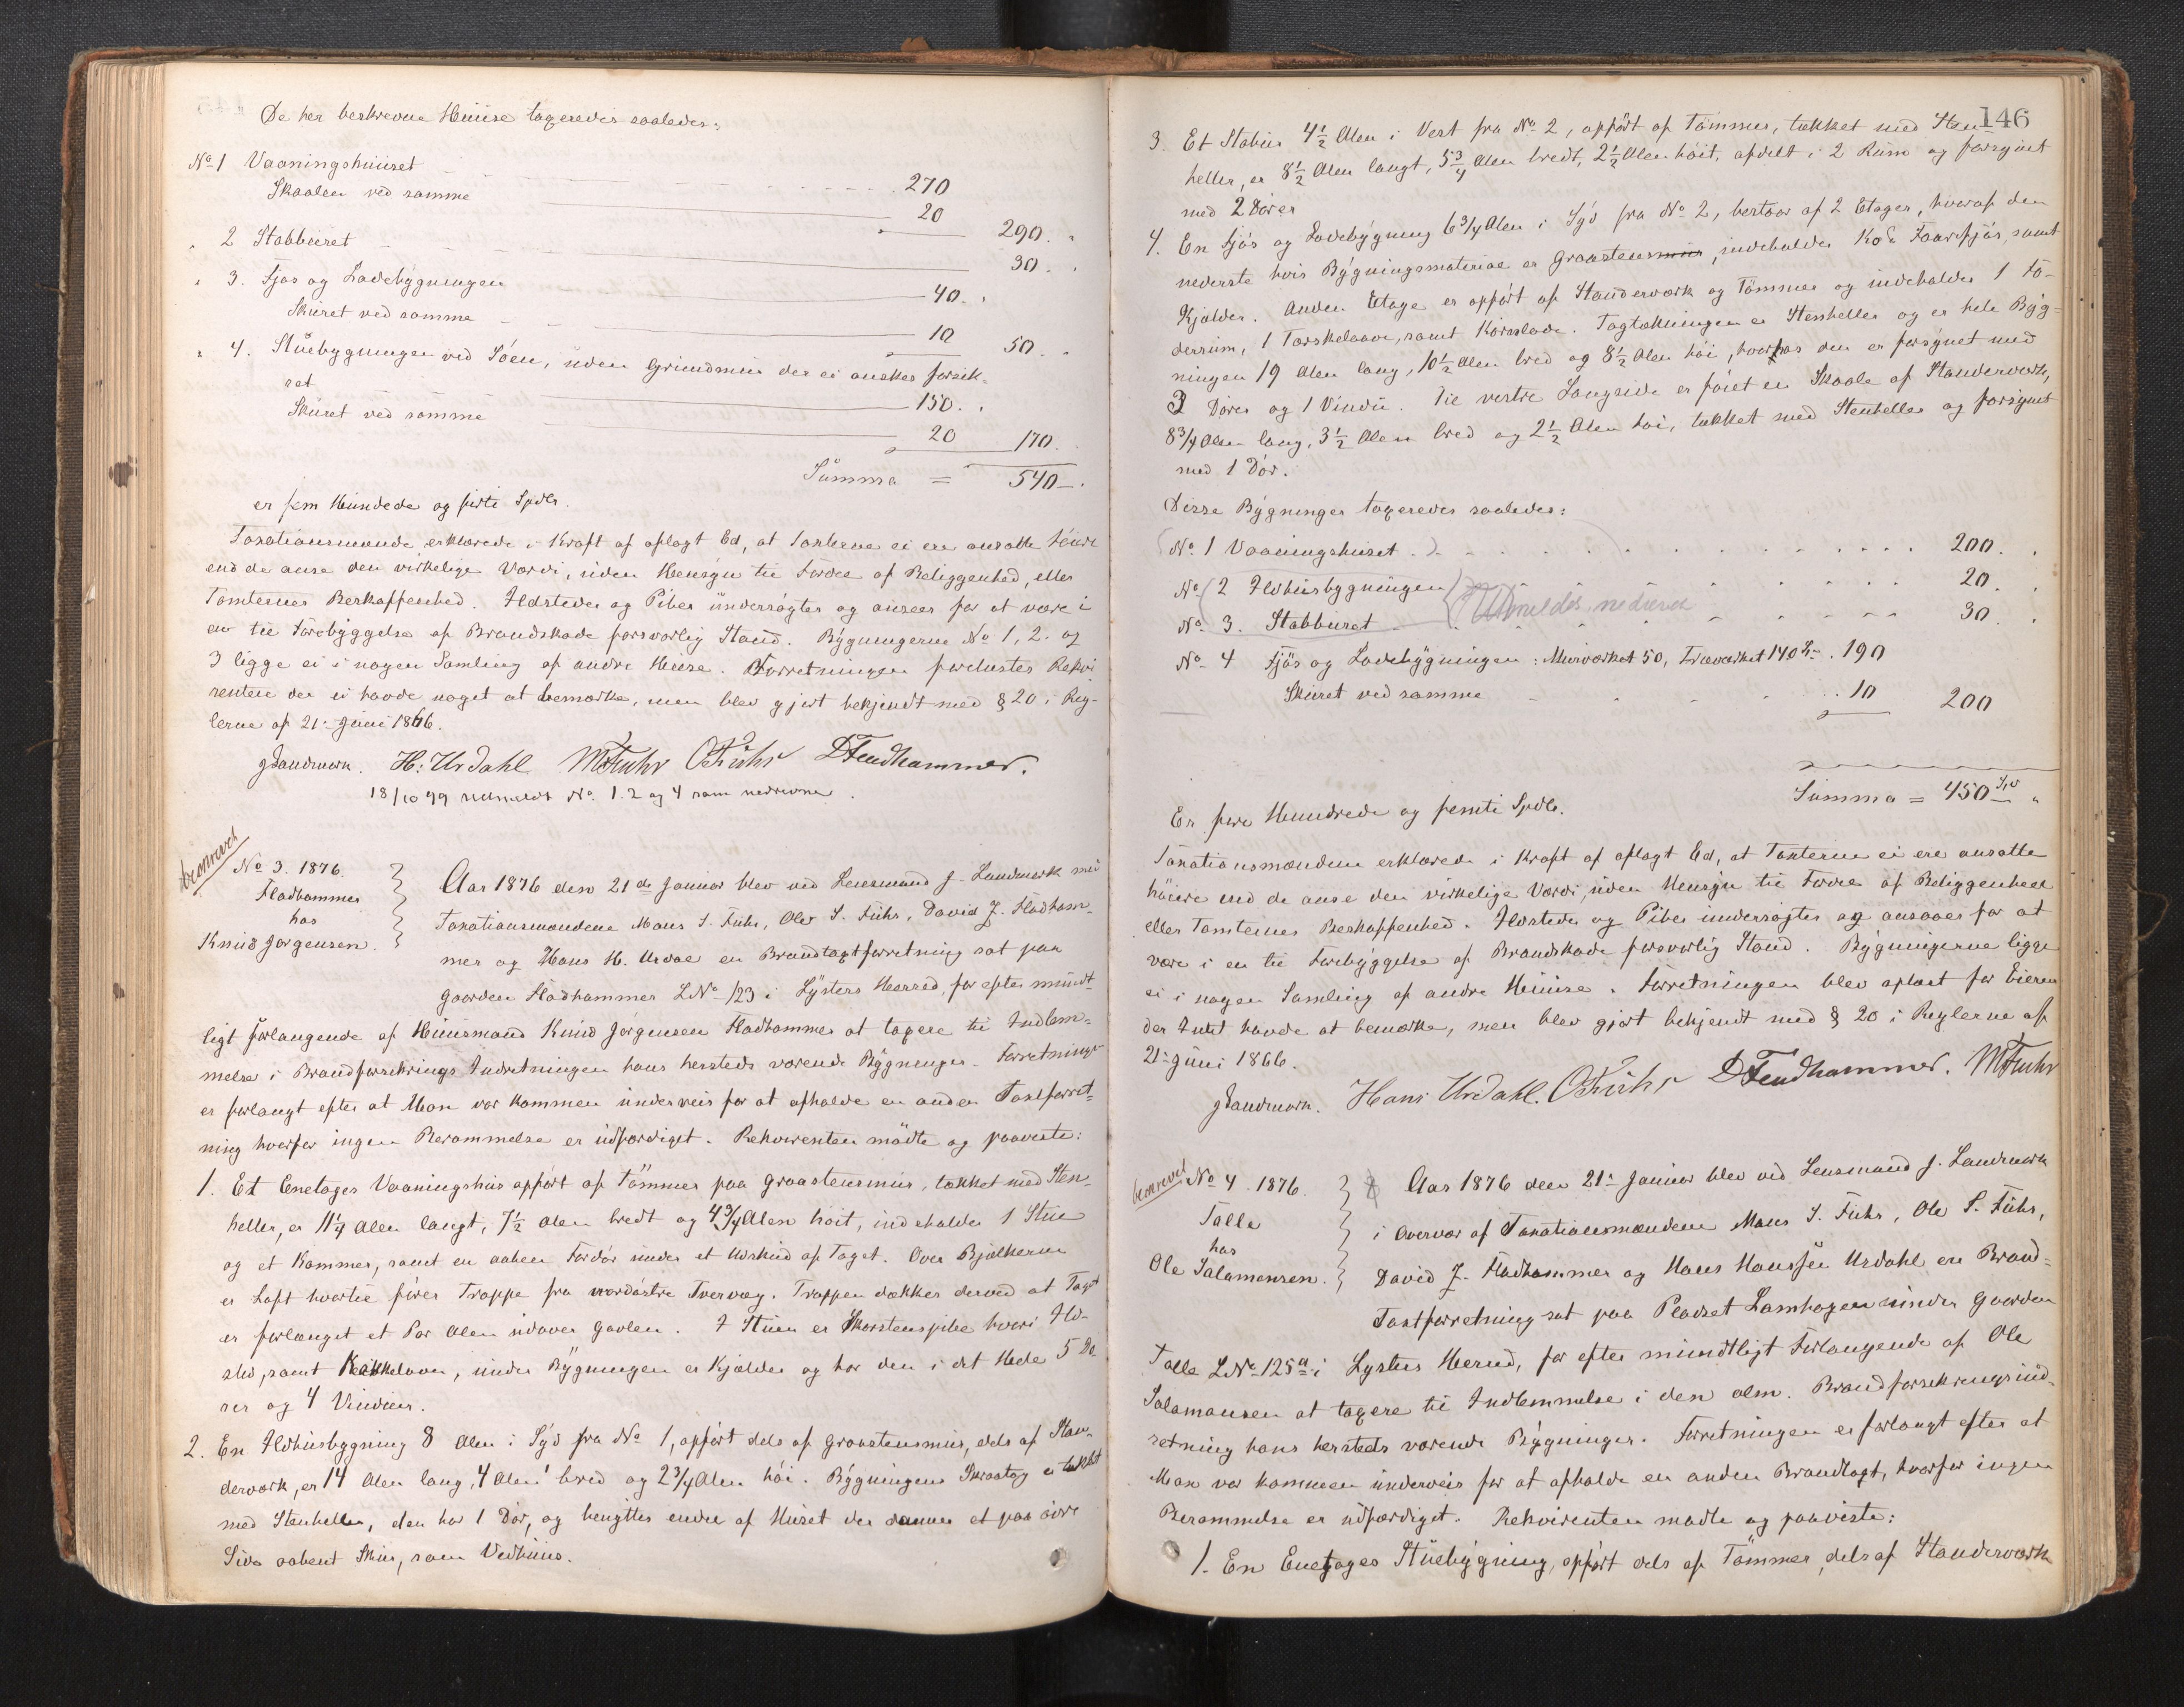 De her beskrevne Huuse taxeredes saaledes:
No 1 Vaaningshuuset 270
Skaalen ved samme 20 290.
" 2 Stabburet 30.
" 3. Fjøs og Ladebygningen 40.
Skuret ved samme 10 50.
" 4. Stuebygningen ved Søen, uden Grundmur der ei ønskes forsik-
ret 150.
Skuret ved samme 20 170.
Summa = 540 -
er fem Hundrede og firti Spdlr.
Taxationsmændene erklærede i Kraft af aflagt Ed, at Taxterne ei ere ansatte høiere
end de anse den virkelige Værdi, uden Hensyn til Fordel af Beliggenhed, eller
Tomternes Beskaffenhed. Ildsteder og Piber undersøgtes og ansees for at være i
en til Forebyggelse af Brandskade forsvarlig Stand. Bygningerne No 1, 2. og
3 ligge ei i nogen Samling af andre Huuse. Forretningen forelæstes Rekvi
renten der ei havde noget at bemærke, men blev gjort bekjendt med § 20 i Reg-
lerne af 21de Juni 1866.
J Landmark. H: Urdahl MFuhr OFuhr DFladhammer.
18/10 99 udmeldt No. 1. 2 og 4 som nedrevne.
No 3. 1876.
Fladhammer
hos
Knud Jørgensen.
Aar 1876 den 21de Januar blev ved Lensmand J. Landmark med
Taxationsmændene Mons S. Fuhr, Ole S. Fuhr, David J. Fladham-
mer og Hans H. Urdal en Brandtaxtforretning sat paa
Gaarden Fladhammer LNo 123 i Lysters Herred, for efter mundt-
ligt Forlangende af Huusmand Knud Jørgensen Fladhammer at taxere til Indlem-
melse i Brandforsikrings Indretningen hans hersteds værende Bygninger. Forretningen
er forlangt efter at Man var kommen underveis for at afholde en anden Taxtforret-
ning hvorfor ingen Berammelse er udfærdiget. Rekvirenten mødte og paaviste:
1. Et Enetages Vaaningshus opført af Tømmer paa Graastensmur, tækket med Sten-
heller, er 11 1/4 Alen langt, 7 1/2 Alen bredt og 4 3/4 Alen høit, indeholder 1 Stue
og et Kammer, samt en aaben Fordør under et Udskud af Taget. Over Bjælkerne
er Loft hvortil fører Trappe fra nordøstre Tvervæg. Trappen dækkes derved at Taget
er forlænget et Par Alen udover Gavlen. I Stuen er Skorstenspibe hvori Ild-
sted, samt Kakkelovn, under Bygningen er Kjælder og har den i det Hele 5 Dø-
rer og 4 Vinduer.
2. En Ildhusbygning 8 Alen i Syd fra No 1, opført dels af Graastensmur, dels af Stan-
derværk, er 14 Alen lang, 4 Alen bred og 2 3/4 Alen høi. Bygningens Skraatag er tækket
med Stenheller, den har 1 Dør, og benyttes endel af Huset der danner et paa øvre
Side aabent Skur, som Vedhuus.
146
3. Et Stabur 4 1/2 Alen i Vest fra No 2, opført af Tømmer, tækket med Sten-
heller, er 8 1/2 Alen langt, 5 3/4 Alen bredt, 2 1/2 Alen høit, afdelt i 2 Rum og forsynet
med 2 Dører
4. En Fjøs og Ladebygning 6 3/4 Alen i Syd fra No 2, bestaar af 2 Etager, hvoraf den
nederste hvis Bygningsmateriale er Graastensmur, indeholder Ko & Faarefjøs, samt
Kjælder. Anden Etage er opført af Standerværk og Tømmer og indeholder 1 Fo-
derrum, 1 Tærskelaave, samt Kornlade. Tagtækningen er Stenheller og er hele Byg-
ningen 19 Alen lang, 10 1/2 Alen bred og 8 1/2 Alen høi, hvorhos den er forsynet med
3 Dører og 1 Vindu. Til vestre Langside er føiet en Skaale af Standerværk,
8 3/4 Alen lang, 3 1/2 Alen bred og 2 1/2 Alen høi, tækket med Stenheller og forsynet
med 1 Dør.
Disse Bygninger taxeredes saaledes:
No 1 Vaaningshuset 200.
No 2 Ildhusbygningen 20.
Udmeldes nedrevet
No 3. Stabburet 30.
No 4 Fjøs og Ladebygningen: Murværket 50, Træværket 140 190
Skuret ved samme 10 200
Summa = 450 Spd
Er fire Hundrede og femti Spdlr.
Taxationsmændene erklærede i Kraft af aflagt Ed, at Taxterne ei ere ansatte
høiere end de anse den virkelige Værdi, uden Hensyn til Fordel af Beliggenhed
eller Tomternes Beskaffenhed. Ildsteder og Piber undersøgtes og ansaaes for at
være i en til Forebyggelse af Brandskade forsvarlig Stand. Bygningerne ligge
ei i nogen Samling af andre Huuse. Forretningen blev oplæst for Eieren
der Intet havde at bemærke, men blev gjort bekjendt med § 20 i Reglerne af
21de Juni 1866.
J Landmark. Hans Urdahl. OFuhr DFladhammer. MFuhr
No 4. 1876.
Talle
hos
Ole Salamonsen.
Aar 1876 den 21de Januar blev ved Lensmand J. Landmark
i Overvær af Taxationsmændene Mons S. Fuhr, Ole S. Fuhr,
David J. Fladhammer og Hans Hanssen Urdahl en Brand-
Taxtforretning sat paa Pladset Lamhagen under Gaarden
Talle LNo 125a i Lysters Herred, for efter mundtligt Forlangende af Ole
Salamonsen at taxere til Indlemmelse i den alm. Brandforsikringsind-
retning hans hersteds værende Bygninger. Forretningen er forlangt efter at
Man var kommen underveis for at afholde en anden Brandtaxt, hvorfor ingen
Berammelse er udfærdiget. Rekvirenten mødte og paaviste:
1. En Enetages Stuebygning, opført dels af Tømmer, dels af Standerværk